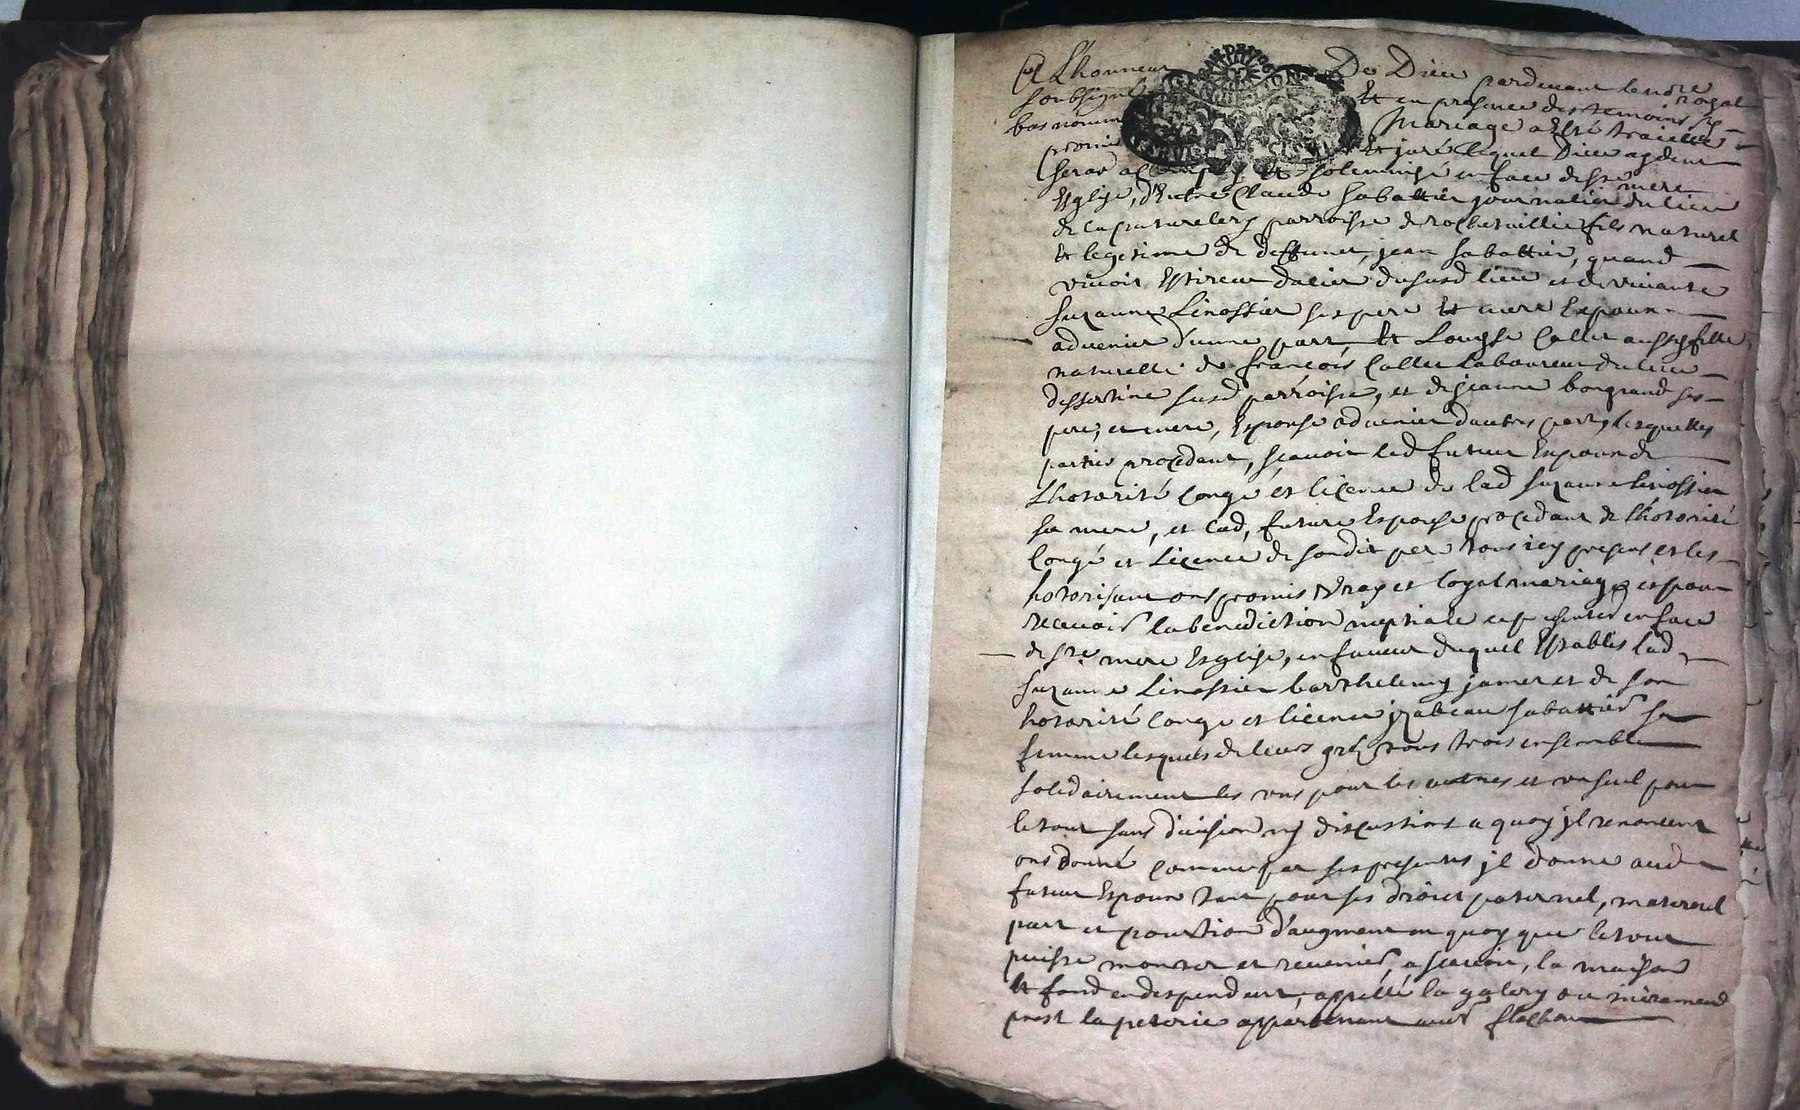 A Lhonneur De Dieu pardevant le no.re royal
soubsigné Et en presence des temoins
bas nommés Mariage a Esté traicté
promis Et juré lequel Dieu aydant
sera accomply et solemnisé en face de s.te mere
Esglise, d'Entre Claude Sabattier journalier du lieu
de parroisse de rochetaillie fils naturel
et legitime de deffunct jean Sabattier, quand
vivoit Estireur dacier dususd lieu et de vivante
Suzanne Linossier ses pere Et mere Expoux
advenir d'une part Et Louyse Collet aussy fille
naturelle de francois Collet Laboureur du lieu
dessertine susd parroisse, et de jeanne bongrand ses
pere, et mere, Espouse advenir dautre part, lesquelles
parties procedant, scavoir led futur Expoux de
Lhotorité congé et licence de lad Suzanne linossier
sa mere, et lad, future Espouse procedant de Lhotorité
Congé et Licence de sondit pere tous icy presens et les
hotorisant ont promis vray et loyal mariage et pour
recevoir la benediction nuptiale se presenter en face
de s.te mere Esglise, en faveur duquel Establis lad
Suzanne Linossier barthelemy jamet et de son
hotorité congé et licence jzabeau Sabattier sa
femme lesquels de leurs grez tous trois ensemble
solidairement les uns pour les autres et un seul pour
le tout sans division ny discussions a quoy jl renoncent
ont donné comme par ses presentes jl donne aud
futur Expoux tant pour ses droict paternel, maternel
part et pourtion d'augment en quoy que le tout
puisse monter et revenir, a scavoir, la maison
Et fond en despendant, appellé la
prest la appartenant aud